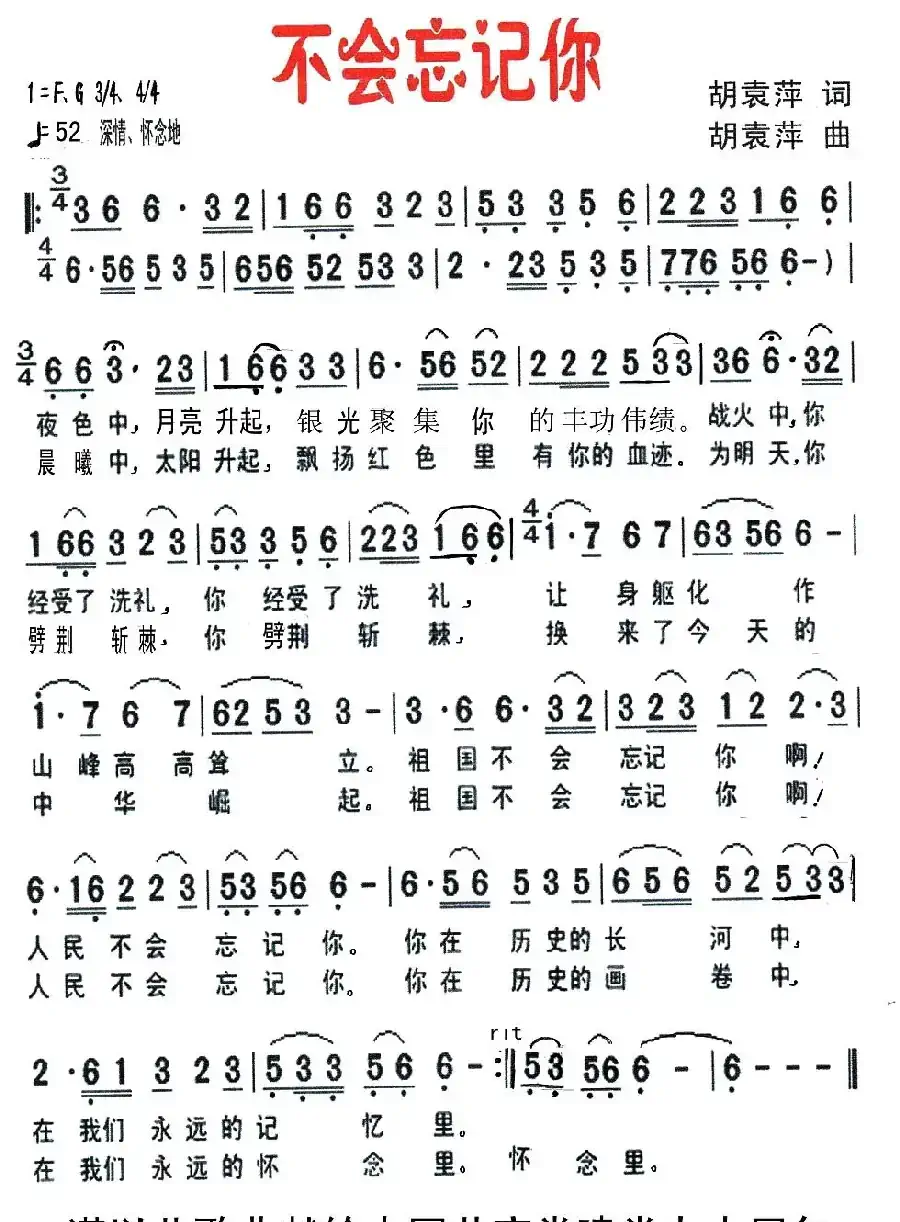 不会忘记你
1=F、G 3/4、4/4
胡袁萍 词
♩=52 深情、怀念地
胡袁萍 曲
3/4
‖: 36 6· 32 | 166 323 | 53 356 | 223 166 |
4/4
6·56 535 | 656 52 533 | 2· 23 535 | 776 56 6-) |
3/4
663· 23 | 166 33 | 6· 56 52 | 222 533 | 36 6·32 |
夜色中,月亮升起,银光聚集你的丰功伟绩。战火中,你
晨曦中,太阳升起,飘扬红色里有你的血迹。为明天,你
4/4
166 323 | 53 356 | 223 166 | i·7 67 | 6356 6- |
经受了洗礼,你经受了洗礼,让身躯化作
劈荆斩棘,你劈荆斩棘,换来了今天的
i·7 67 | 6253 3- | 3·6 6·32 | 323 12 2·3 |
山峰高高耸立。祖国不会忘记你啊!
中华崛起。祖国不会忘记你啊!
6·16 223 | 53 56 6- | 6·56 535 | 656 52 533 |
人民不会忘记你。你在历史的长河中,
人民不会忘记你。你在历史的画卷中,
rit
2·61 323 | 533 56 6- :‖ 53 56 6- | 6--- ‖
在我们永远的记忆里。
在我们永远的怀念里。怀念里。